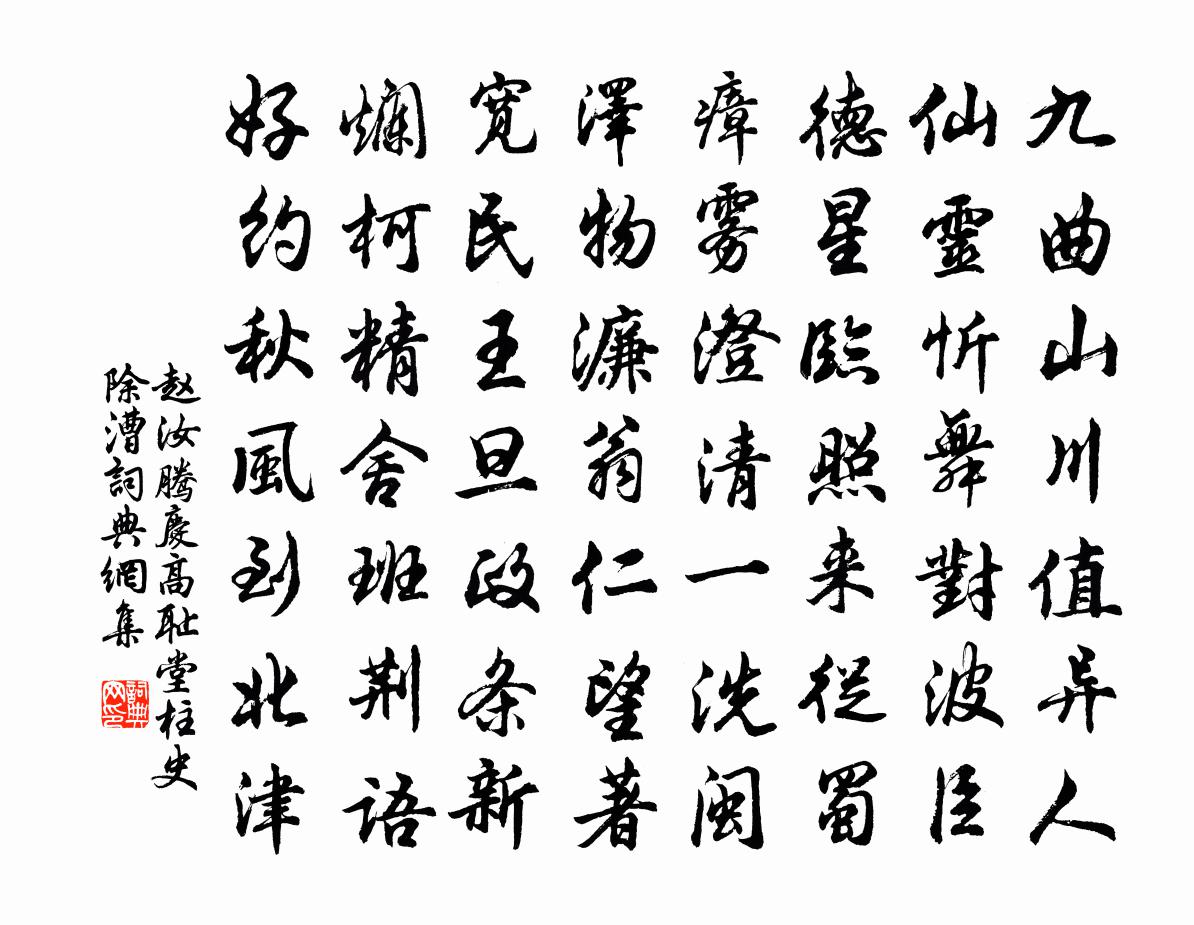 九曲山川值异人
仙靈忻舞對波臣
德星臨照来從蜀
瘴雾澄清一洗闽
澤物濂翁仁望著
宽民王旦政条新
斓柯精舍班荆语
好约秋風到北津
赵汝腾慶高耻堂柱史
除漕詞典網集
詞典网印